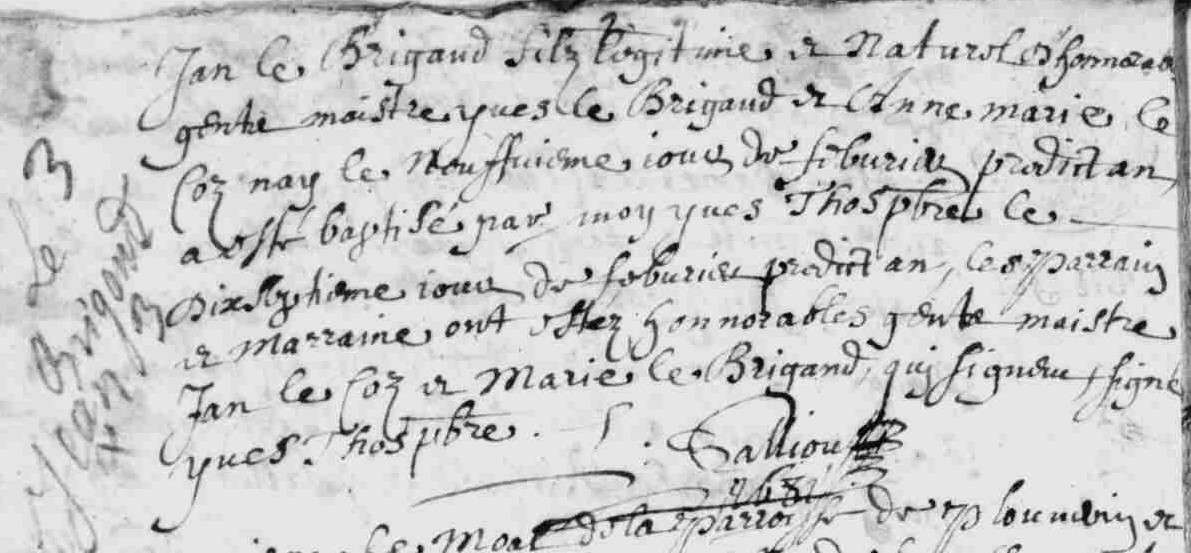 Jan le Brigand filz legitime et Naturel d'honnorab
gentz maistre yves le Brigand et Anne marie le
Coz nay le neuffvieme iour de feburier predict an
a esté baptisé par moy yves Thos pbre le
dixseptieme iour de feburier predict an, les parrain
et marraine ont estez honnorables gents maistre
Jan le Coz et Marie le Brigand, qui signent, signé
yves Thos pbre. Galliou
de la parroisse de et
le 3
Brigand
Jean